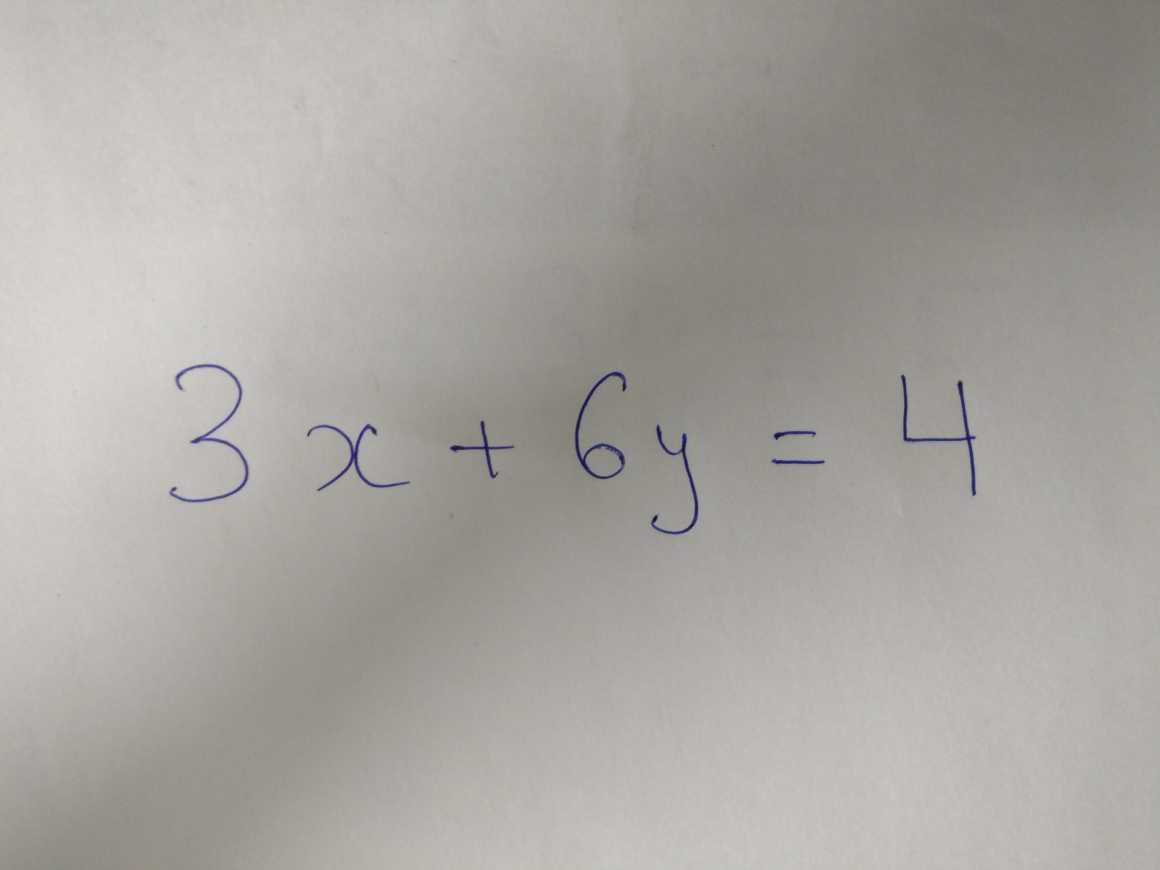 3x + 6y = 4